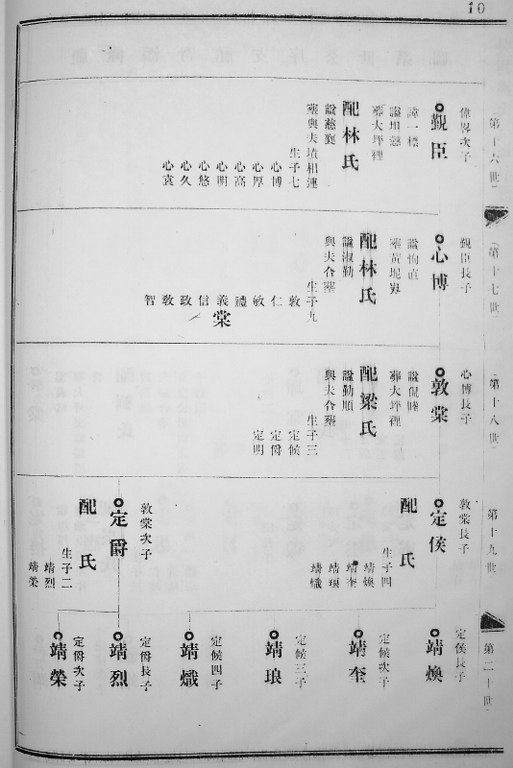 10
第十六世
偉畧次子
觐臣
諱一標
諡坦懿
葬大坪裡
配林氏
諡慈襄
塟與夫墳相連
生子七
心博
心厚
心高
心明
心悠
心久
心袁
第十七世
觐臣長子
心博
諡恂直
塟黃坭
配林氏
諡淑勤
與夫合塟
生子九
敦
仁
敏
禮
義
信
政
敎
智
棠
第十八世
心博長子
敦棠
諡侃睦
葬大坪裡
配梁氏
諡勤順
與夫合塟
生子三
定候
定爵
定明
第十九世
敦棠長子
定侯
配 氏
生子四
靖煥
靖奎
靖琅
靖熾
敦棠次子
定爵
配 氏
生子二
靖烈
靖榮
第二十世
定侯長子
靖煥
定候次子
靖奎
定候三子
靖琅
定候四子
靖熾
定爵長子
靖烈
定爵次子
靖榮